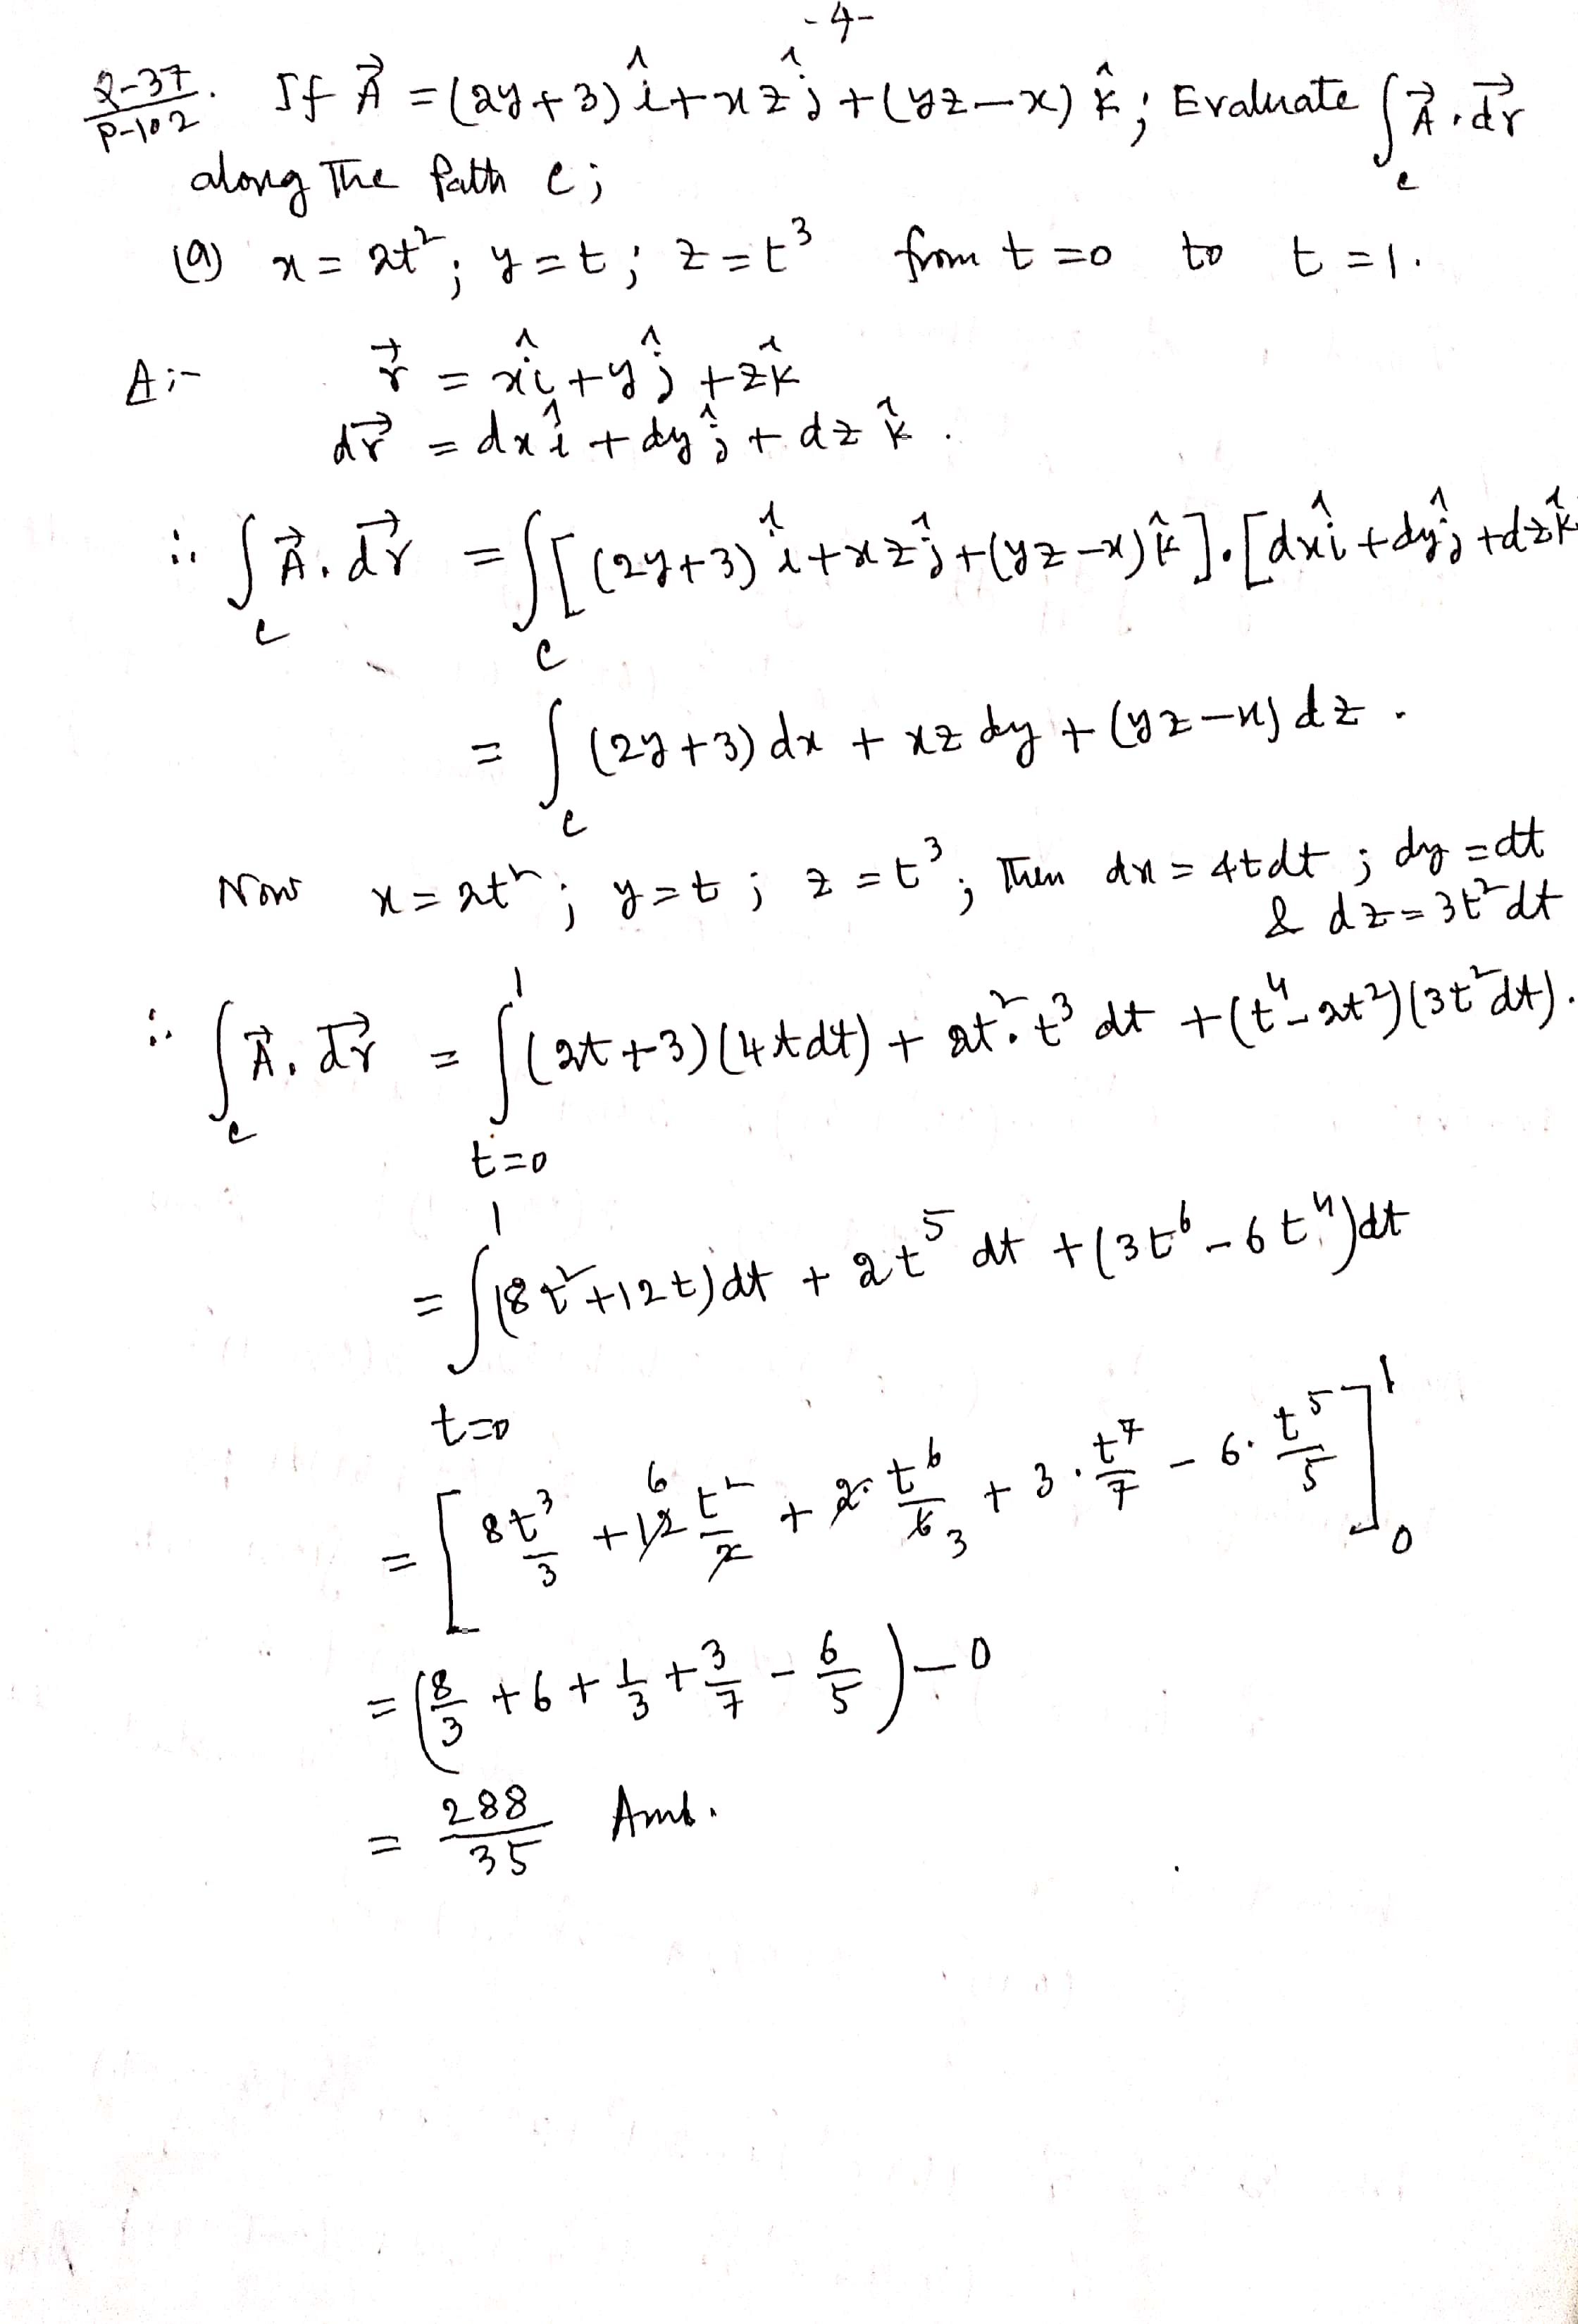 -4-
Q-37/P-102. If A⃗ = (2y+3) î + xz ĵ + (yz-x) k̂; Evaluate ∫_c A⃗ . dr⃗
along The Path c;
(a) x = 2t²; y = t; z = t³ from t = 0 to t = 1.
A:- r⃗ = xî + yĵ + zk̂
dr⃗ = dx î + dy ĵ + dz k̂ .
∴ ∫_c A⃗ . dr⃗ = ∫_c [(2y+3) î + xz ĵ + (yz-x) k̂] . [dx î + dy ĵ + dz k̂
= ∫_c (2y+3) dx + xz dy + (yz-x) dz .
Now x = 2t²; y = t; z = t³; Then dx = 4t dt; dy = dt
& dz = 3t² dt
∴ ∫_c A⃗ . dr⃗ = ∫_{t=0}^{1} (2t+3)(4t dt) + 2t² . t³ dt + (t⁴ - 2t²)(3t² dt).
= ∫_{t=0}^{1} (8t² + 12t) dt + 2t⁵ dt + (3t⁶ - 6t⁴) dt
= [8t³/3 + 12 6 t²/2 + 2 . t⁶/6 3 + 3 . t⁷/7 - 6 . t⁵/5]_0^1
= (8/3 + 6 + 1/3 + 3/7 - 6/5) - 0
= 288/35 Ans.